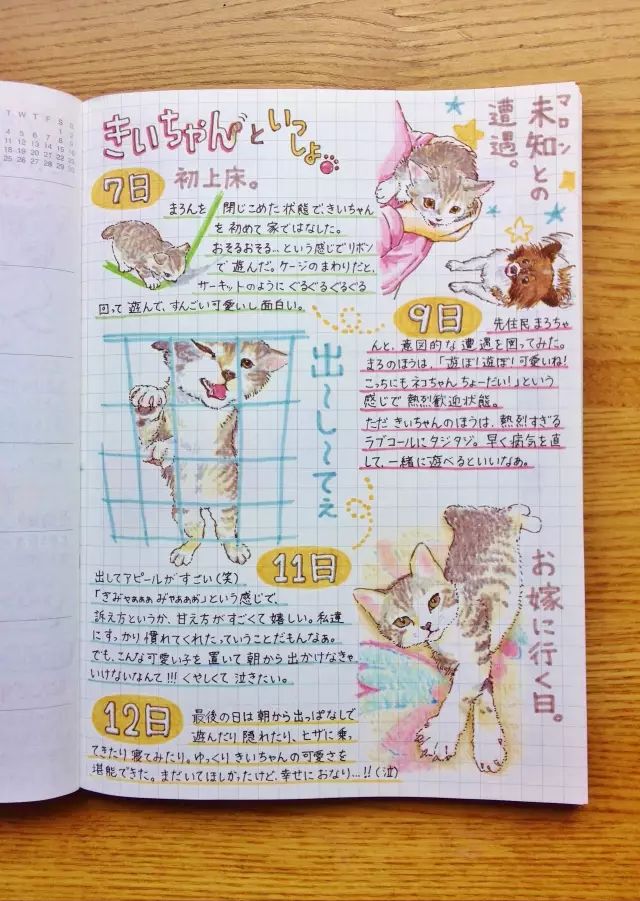 きいちゃんといっしょ
7日
初上床。
まろんを 閉じこめた状態できいちゃん
を初めて家ではなした。
おそるおそる…という感じでリボン
で遊んだ。ケージのまわりだと、
サーキットのように ぐるぐるぐるぐる
回って遊んで、すんごい可愛いし面白い。
マロン
未知との
遭遇。
9日
先住民まろちゃ
んと、意図的な遭遇を図ってみた。
まろのほうは、「遊ぼ!遊ぼ!可愛いね!
こっちにもネコちゃんちょーだい!」という
感じで熱烈歓迎状態。
ただきいちゃんのほうは、熱烈すぎる
ラブコールにタジタジ。早く病気を直
して、一緒に遊べるといいなぁ。
出〜し〜てぇ
11日
出してアピールがすごい(笑)
「きみゃぁぁぁ みゃぁぁぁ」という感じで、
訴え方というか、甘え方がすごくて嬉しい。私達
にすっかり慣れてくれたっていうことだもんなぁ。
でも、こんな可愛い子を置いて朝から出かけなきゃ
いけないなんて!!!くやしくて泣きたい。
お嫁に行く日。
12日
最後の日は朝から出っぱなしで
遊んだり隠れたり、ヒザに乗っ
てきたり寝てみたり。ゆっくりきいちゃんの可愛さを
堪能できた。まだいてほしかったけど、幸せにおなり…!!(泣)
T W T F S S
1 2
4 5 6 7 8 9
11 12 13 14 15 16
18 19 20 21 22 23
25 26 27 28 29 30